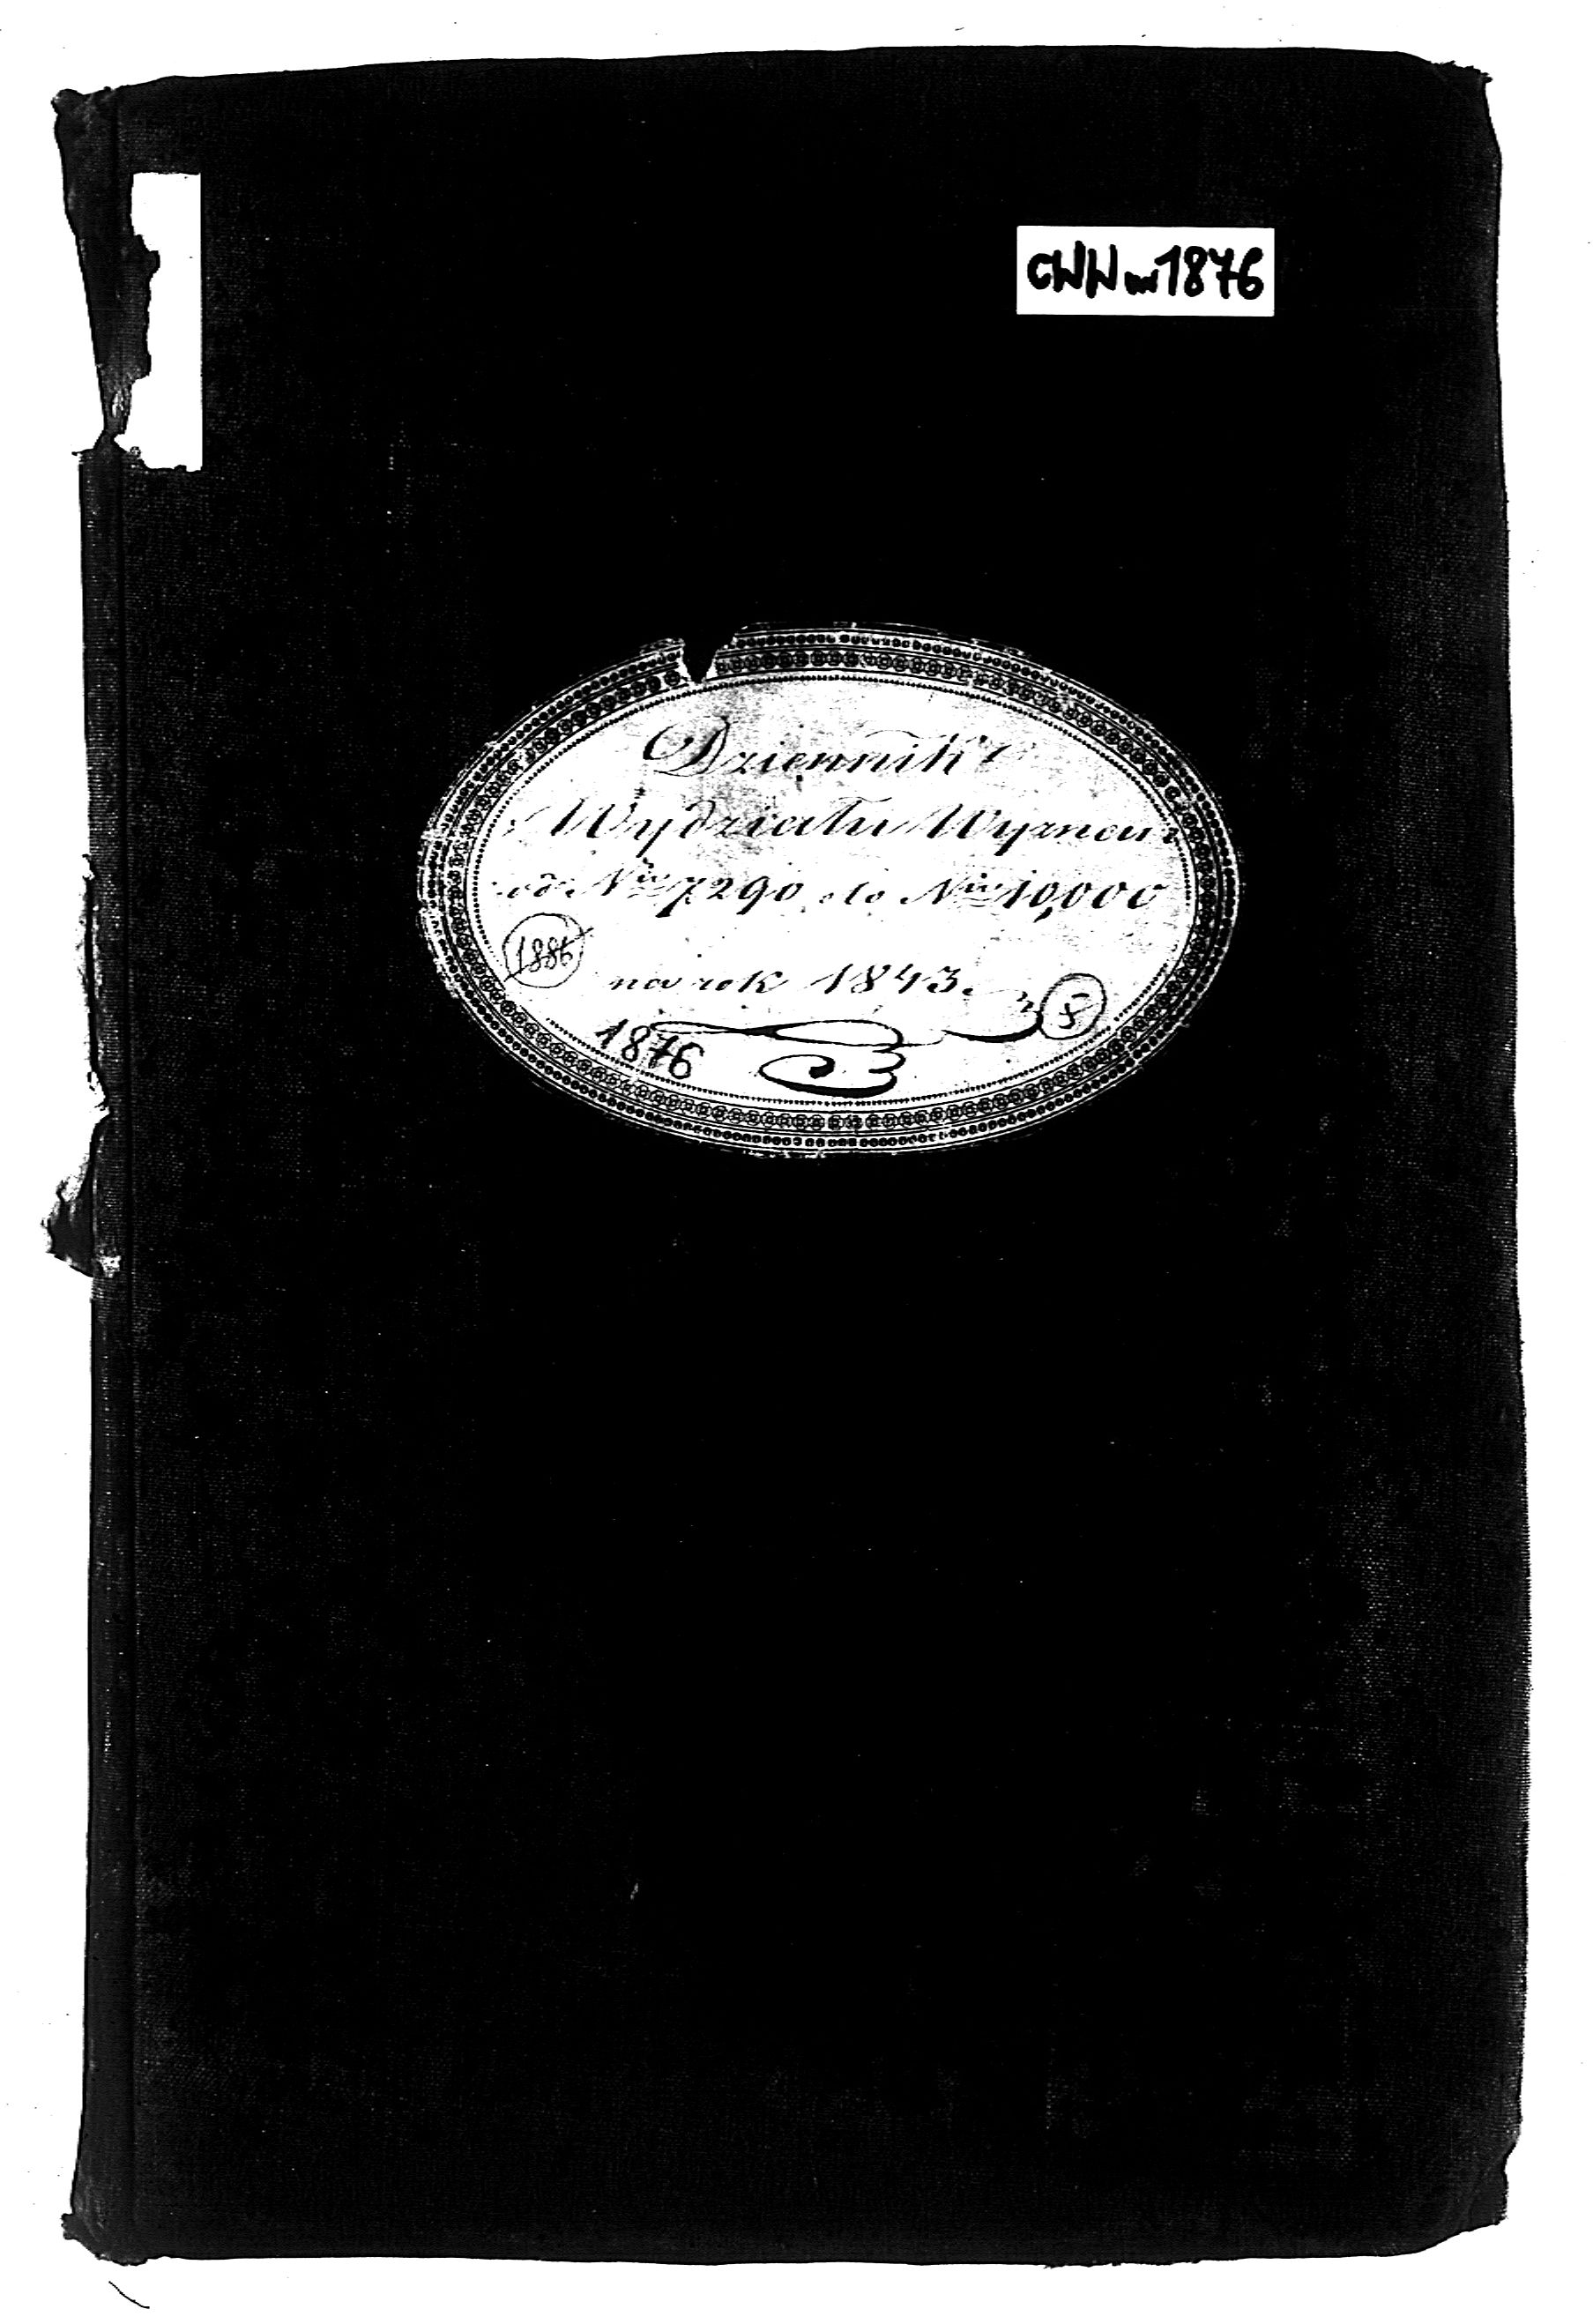 CWW nr 1876
Dziennik
Wydziału Wyznań
od Nru 7290 do Nru 10,000
1886
na rok 1843.
1876